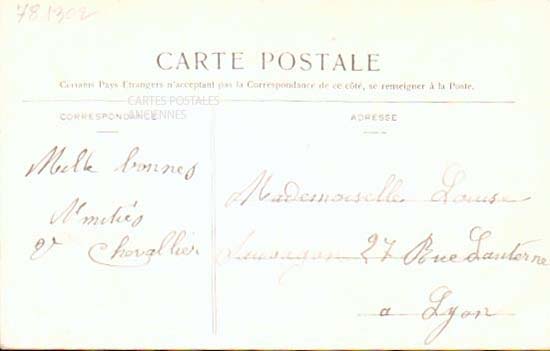 78 1302
CARTE POSTALE
Certains Pays Etrangers n'acceptant pas la Correspondance de ce côté, se renseigner à la Poste.
CARTES POSTALES
ANCIENNES
CORRESPONDANCE
Mille bonnes
Amitiés
Chevallier
ADRESSE
Mademoiselle Louise
27 Rue Lanterne
a Lyon